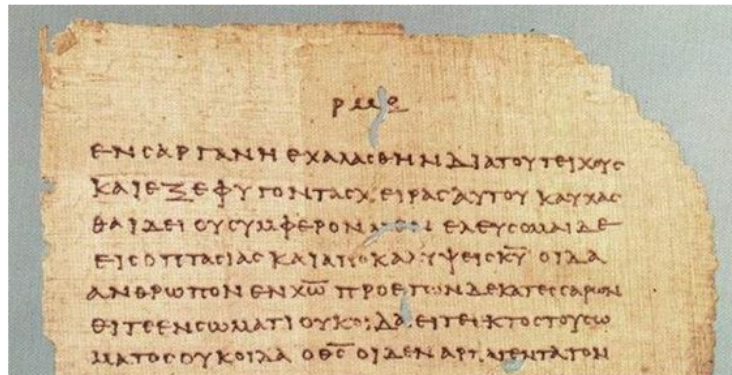 ΕΝϹΑΡΓΑΝΗ ΕΧΑΛΑϹΘΗΝ ΔΙΑΤΟΥΤΕΙΧΟΥϹ
ΚΑΙΕΞΕΦΥΓΟΝΤΑϹΧΕΙΡΑϹΑΥΤΟΥ ΚΑΥΧΑϹ
ΘΑΙΔΕΙ ΟΥϹΥΜΦΕΡΟΝ ΜΕΝ ΕΛΕΥϹΟΜΑΙΔΕ
ΕΙϹΟΠΤΑϹΙΑϹ ΚΑΙΑΠΟΚΑΛΥΨΕΙϹ Κ̅Υ̅ ΟΙΔΑ
ΑΝΘΡΩΠΟΝ ΕΝ Χ̅Ω̅ ΠΡΟΕΤΩΝΔΕΚΑΤΕϹϹΑΡΩΝ
ΕΙΤΕΕΝϹΩΜΑΤΙ ΟΥΚΟΙΔΑ ΕΙΤΕΕΚΤΟϹΤΟΥϹΩ
ΜΑΤΟϹ ΟΥΚΟΙΔΑ Ο Θ̅Ϲ̅ ΟΙΔΕΝ ΑΡΠΑΓΕΝΤΑΤΟΝ